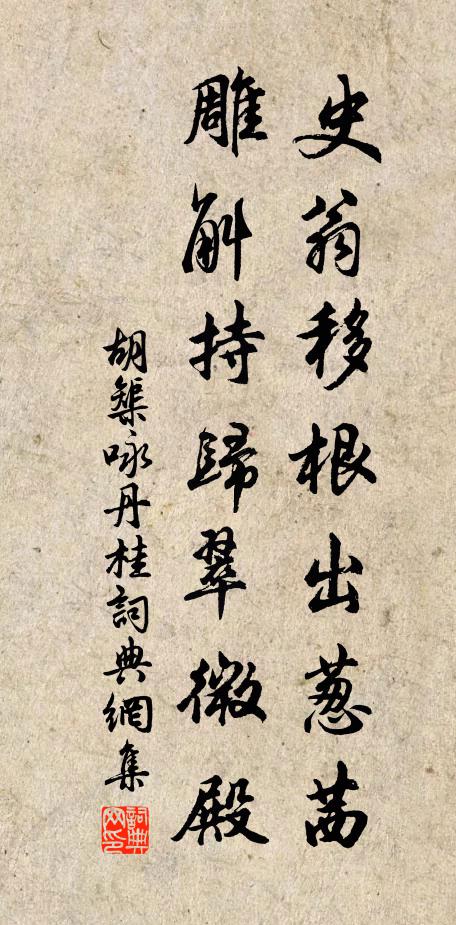 史翁移根出葱茜
雕斛持歸翠微殿
胡榘咏丹桂詞典網集
詞典网印